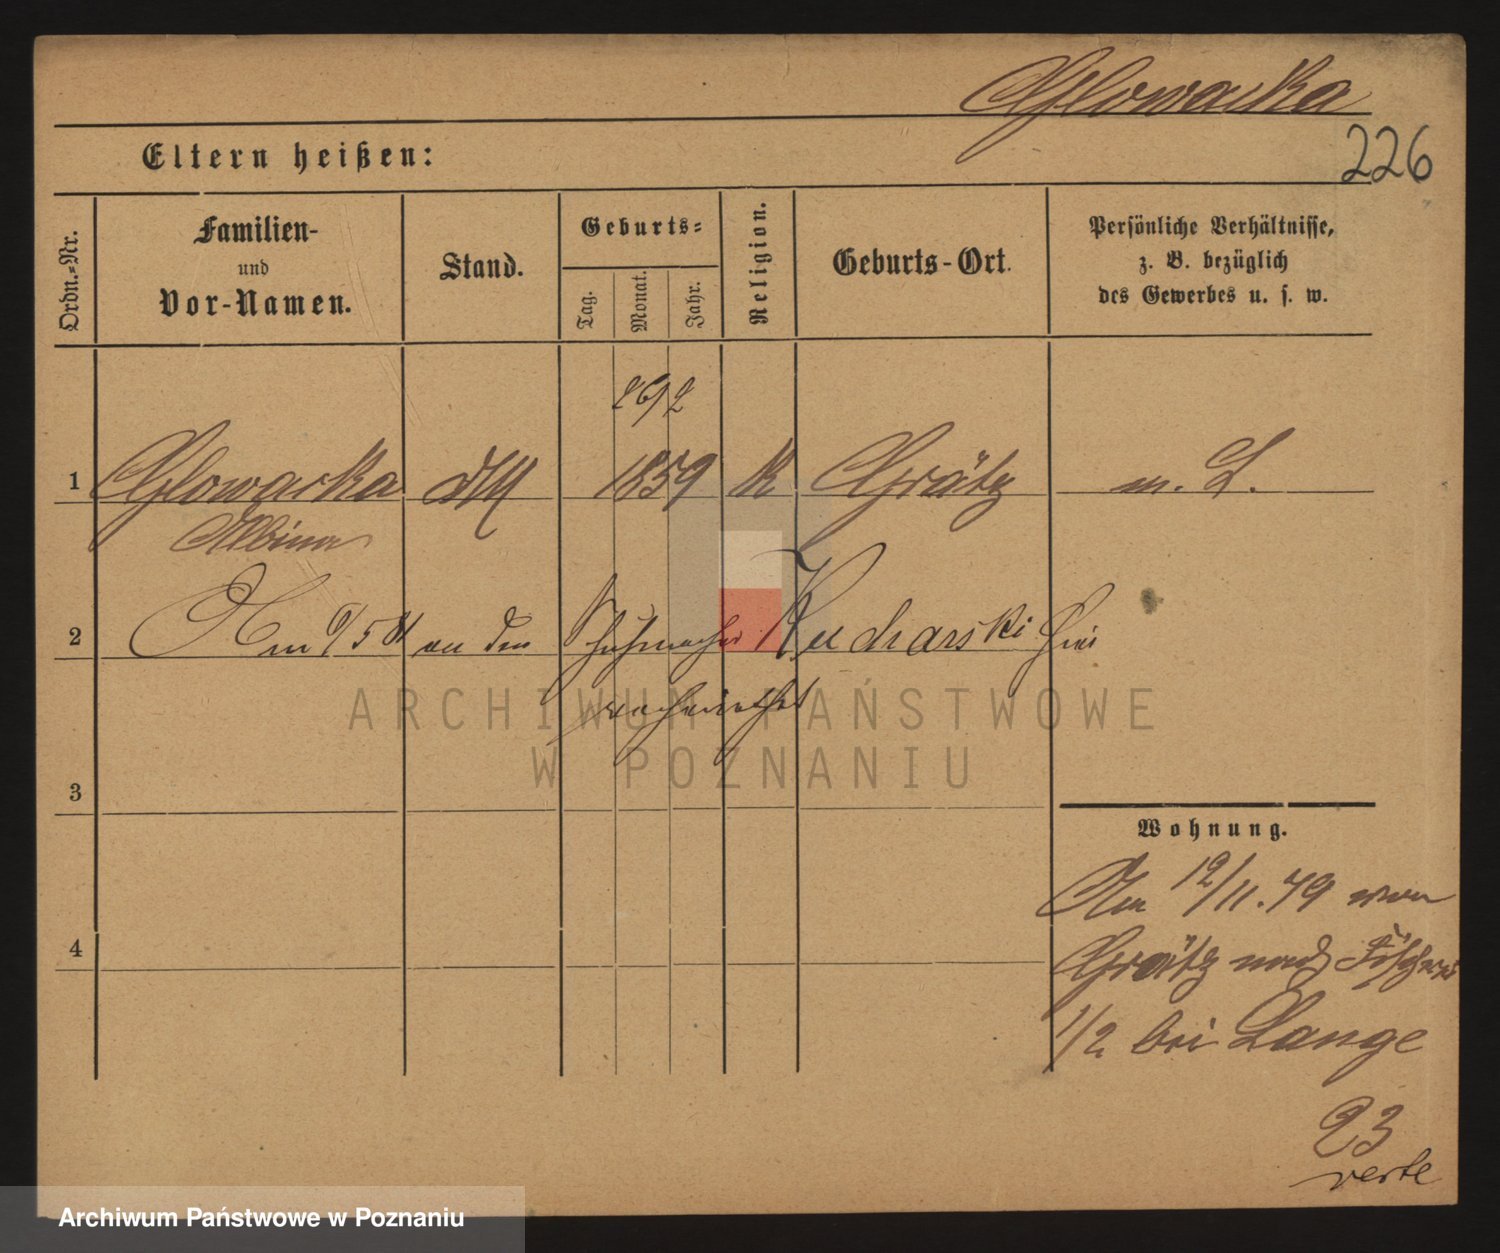 Glowacka
226
Eltern heißen:
Ordn.-Nr.
Familien-
und
Vor-Namen.
Stand.
Geburts-
Tag.
Monat.
Jahr.
Religion.
Geburts-Ort.
Persönliche Verhältnisse,
z. B. bezüglich
des Gewerbes u. s. w.
26/2
1 Glowacka 1859 K Grätz m. L.
Albina
2 Am 9/5 81 an den Schuhmacher Kucharski hier
verheirathet
3
Wohnung.
Am 12/11.79 von
4
Grätz nach Fischerei
1/2 bei Lange
23
verte
ARCHIWUM PAŃSTWOWE
W POZNANIU
Archiwum Państwowe w Poznaniu